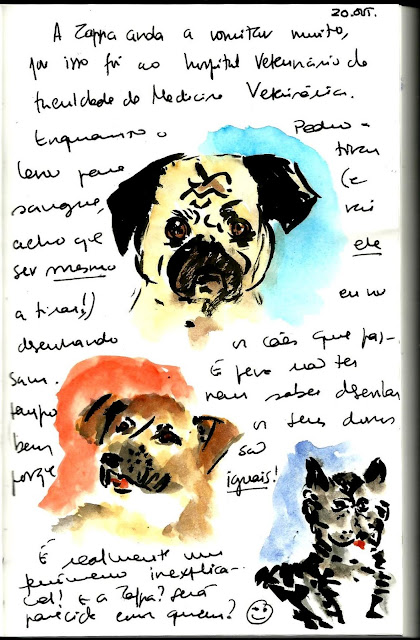 20.OUT.
A Zappa anda a vomitar muito,
por isso foi ao hospital Veterinário da
Faculdade de Medicina Veterinária.
Enquanto o Pedro a
leva para tirar
sangue, (e
acho que vai
ser mesmo ele
a tirar!) eu vou
desenhando os cães que pas-
sam. É pena não ter
tempo nem saber desenhar
bem os seus donos
porque são
iguais!
É realmente um
fenómeno inexplicá-
vel! E a Zappa? Será
parecida com quem?